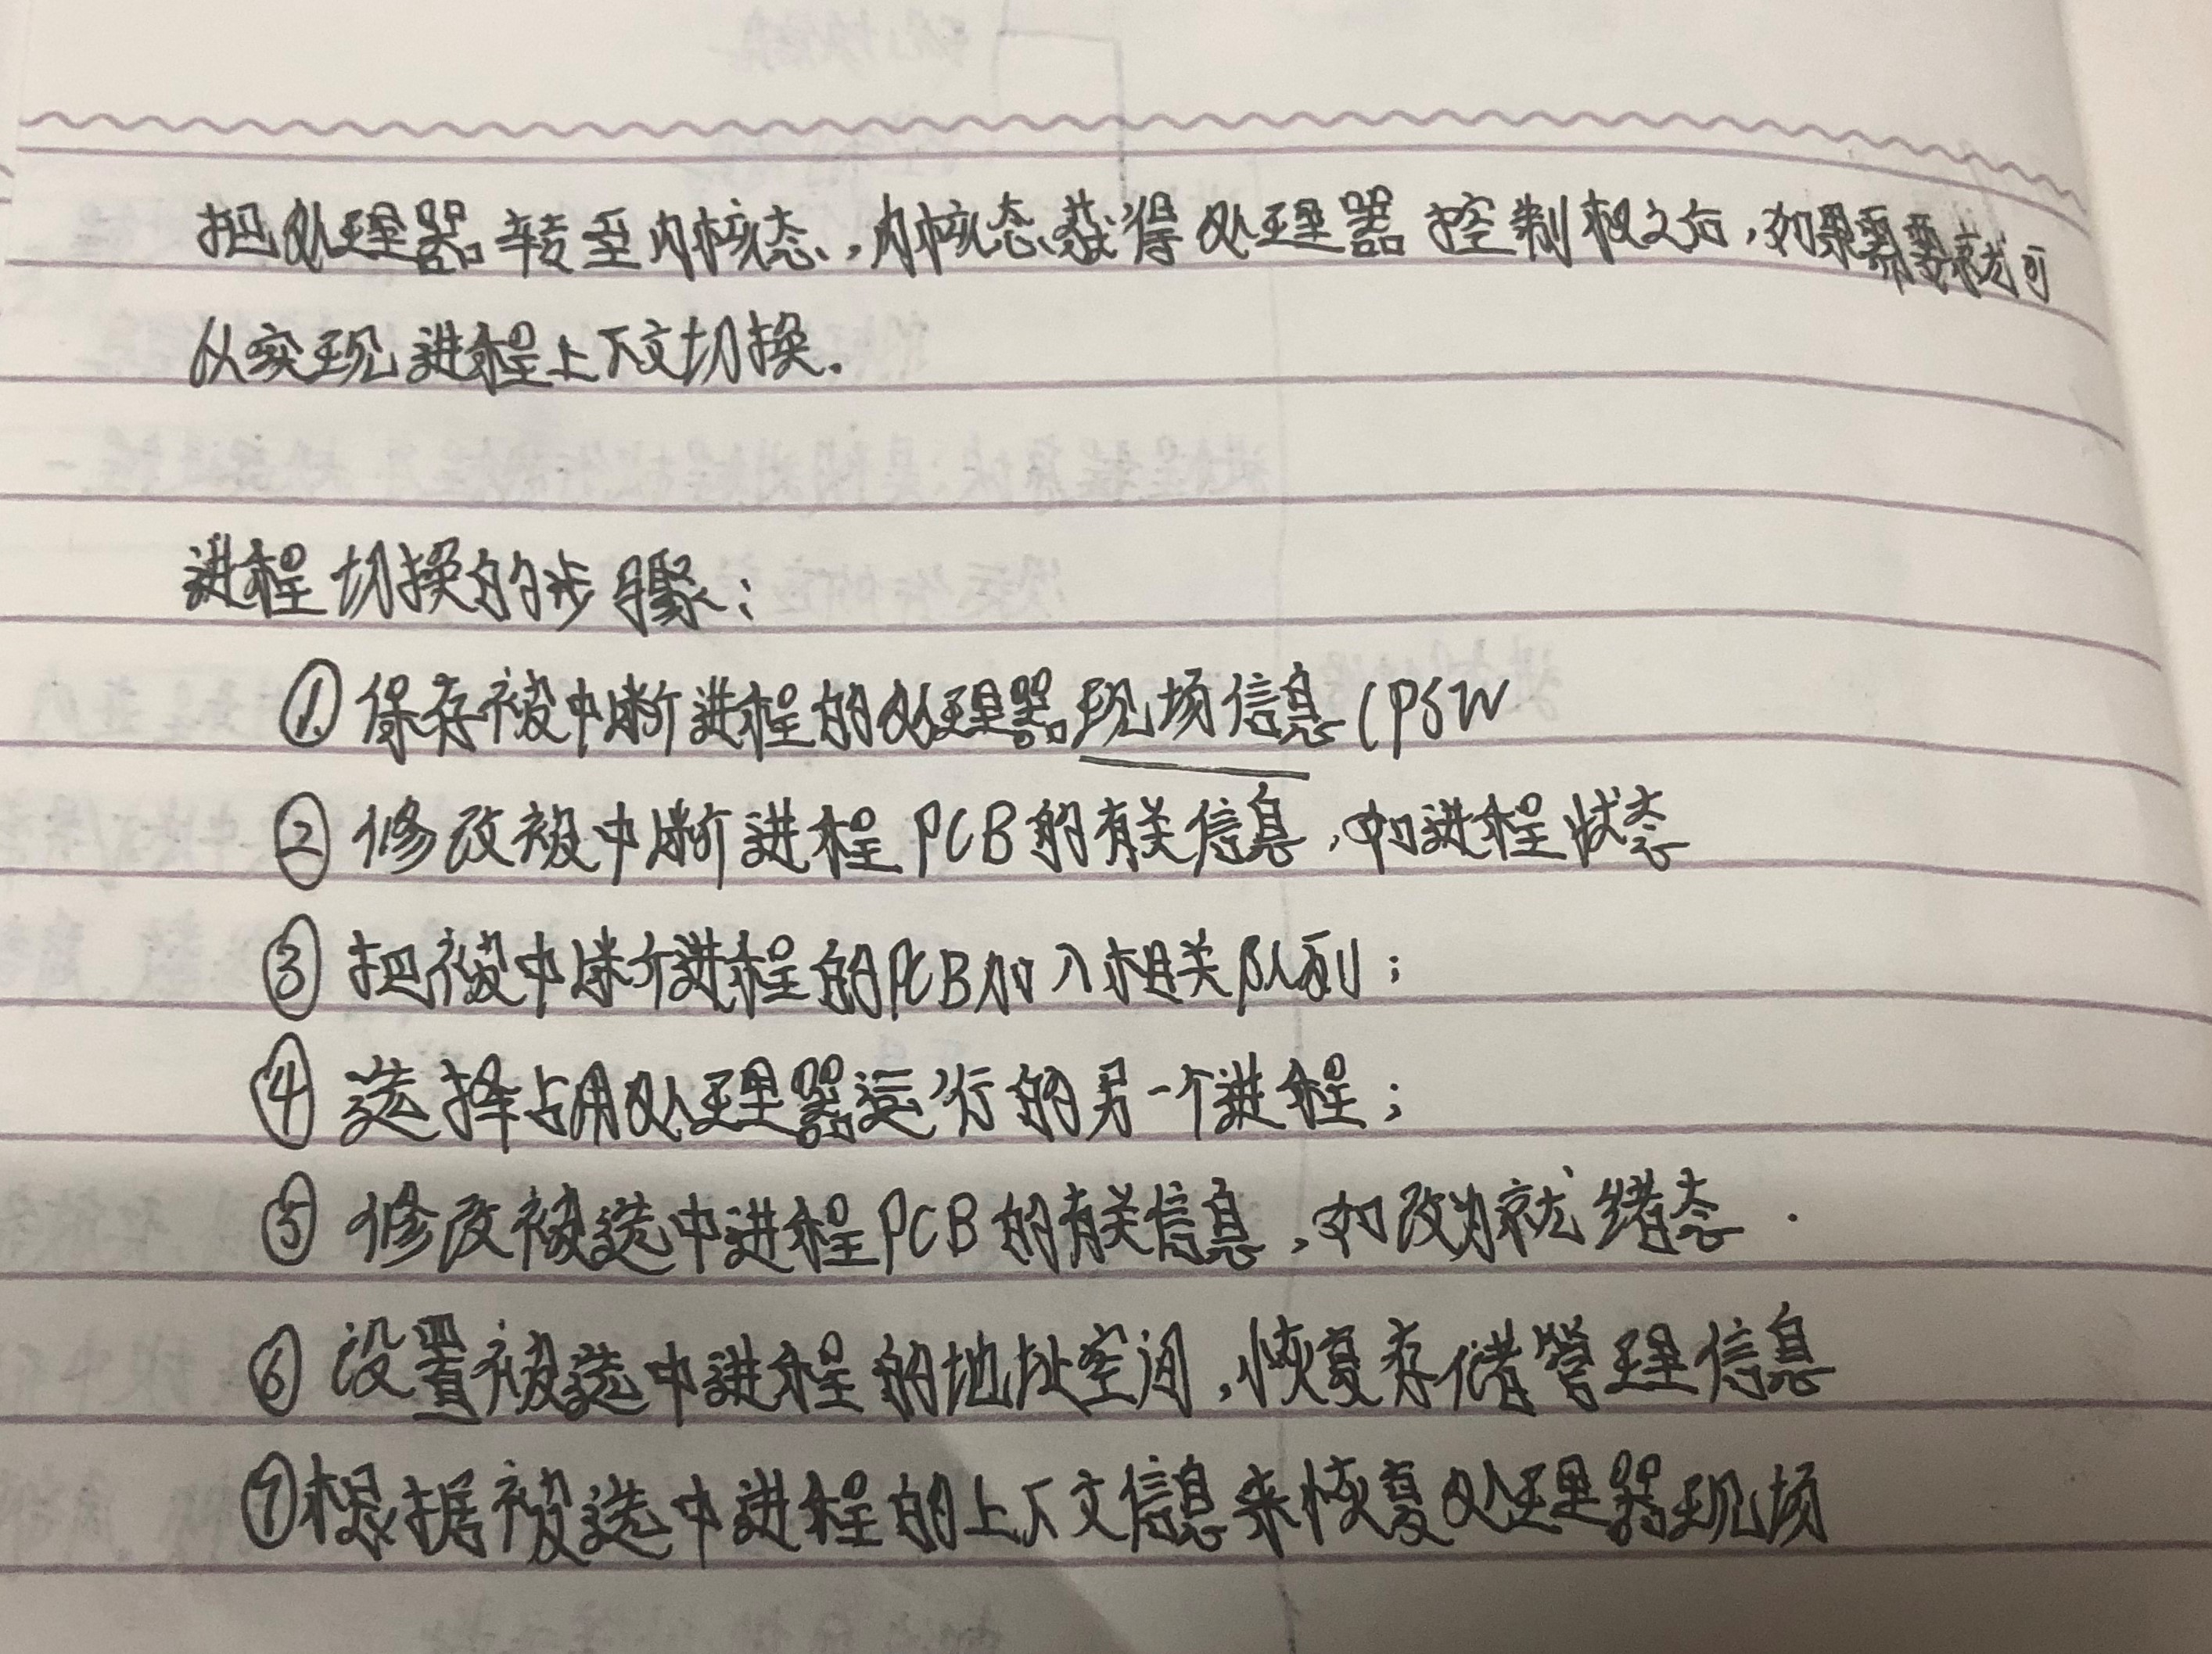 把处理器转至内核态,内核态获得处理器控制权之后,如果需要就可
以实现进程上下文切换.
进程切换的步骤:
① 保存被中断进程的处理器现场信息(PSW
② 修改被中断进程PCB的有关信息,如进程状态
③ 把被中断进程的PCB加入相关队列;
④ 选择占用处理器运行的另一个进程;
⑤ 修改被选中进程PCB的有关信息,如改为就绪态.
⑥ 设置被选中进程的地址空间,恢复存储管理信息
⑦根据被选中进程的上下文信息来恢复处理器现场